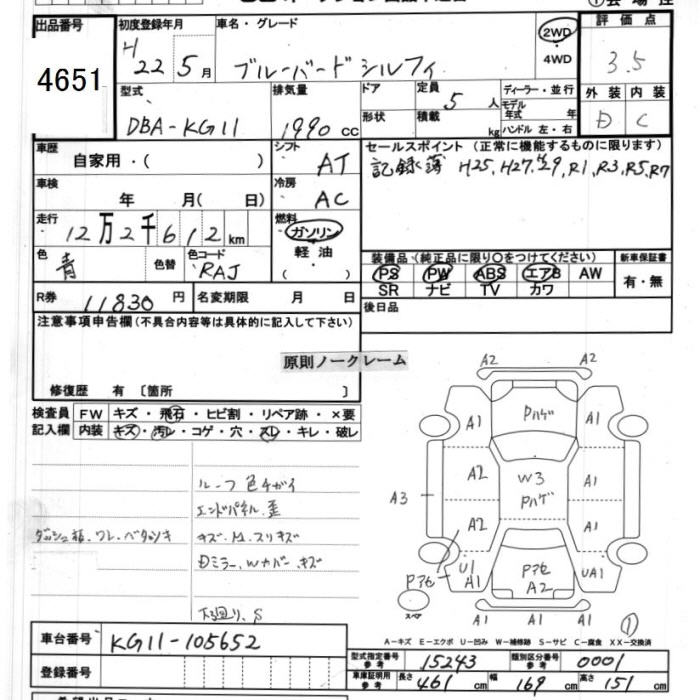 出品番号
4651
初度登録年月
H 22 5月
車名・グレード
ブルーバードシルフィ
2WD
・
4WD
評価点
3.5
外装 内装
D C
型式
DBA-KG11
排気量
1990 cc
ドア
形状
定員
5 人
積載
kg
ディーラー・並行
モデル
年式 年
ハンドル 左・右
車歴
自家用・( )
シフト
AT
セールスポイント(正常に機能するものに限ります)
記録簿 H25,H27,H29,R1,R3,R5,R7
車検
年 月( 日)
冷房
AC
走行
12万2千612km
燃料
ガソリン
軽油
( )
色
青
色替
色コード
RAJ
装備品(純正品に限り○をつけてください)
PS PW ABS エアB AW
SR ナビ TV カワ
新車保証書
有・無
R券
11830 円
名変期限 月 日
後日品
注意事項申告欄(不具合内容等は具体的に記入して下さい)
原則ノークレーム
修復歴 有〔箇所 〕
検査員
記入欄
FW キズ・飛石・ヒビ割・リペア跡・×要
内装 キズ・汚レ・コゲ・穴・スレ・キレ・破レ
ルーフ色チガイ
エンドパネル歪
ダッシュ板、ワレ・ベタツキ
キズ・M.スリキズ
Dミラー、Wカバー、キズ
下廻り、S
A2 A2
A1 Pハゲ A1
A2 W3 A1
Pハゲ
A3
A2 A1
Pアセ U1 A1 Pアセ A2 UA1
スペア
A1 A1 A1
①
A-キズ E-エクボ U-凹み W-補修跡 S-サビ C-腐食 XX-交換済
車台番号
KG11-105652
登録番号
型式指定番号
参考
15243
類別区分番号
参考
0001
車庫証明用
参考
長さ 461 cm 幅 169 cm 高さ 151 cm